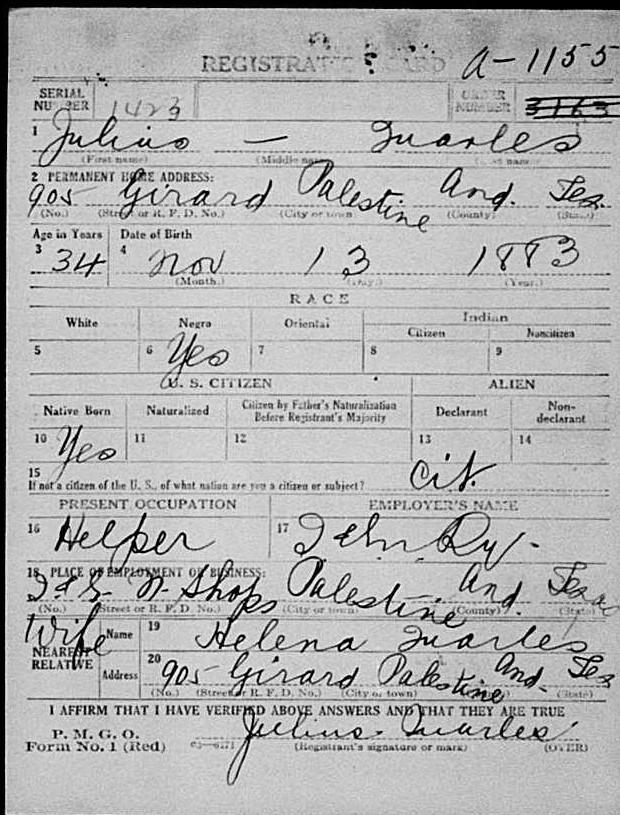 REGISTRATION CARD A-1155
SERIAL NUMBER 1423 ORDER NUMBER 3163
1 Julius — Quarles
(First name) (Middle name) (Last name)
2 PERMANENT HOME ADDRESS:
905 Girard Palestine And. Tex.
(No.) (Street or R. F. D. No.) (City or town) (County) (State)
Age in Years Date of Birth
3 34 4 Nov 13 1883
(Month.) (Day.) (Year.)
RACE
White Negro Oriental Indian
Citizen Noncitizen
5 6 Yes 7 8 9
U. S. CITIZEN ALIEN
Native Born Naturalized Citizen by Father's Naturalization Before Registrant's Majority Declarant Non-declarant
10 Yes 11 12 13 14
15 Cit.
If not a citizen of the U. S., of what nation are you a citizen or subject?
PRESENT OCCUPATION EMPLOYER'S NAME
16 Helper 17 I &  G N Ry.
18 PLACE OF EMPLOYMENT OR BUSINESS:
I & G. N. Shops Palestine And. Texas
(No.) (Street or R. F. D. No.) (City or town) (County) (State)
Wife
NEAREST RELATIVE Name 19 Helena Quarles
Address 20 905 Girard Palestine And. Tex
(No.) (Street or R. F. D. No.) (City or town) (County) (State)
I AFFIRM THAT I HAVE VERIFIED ABOVE ANSWERS AND THAT THEY ARE TRUE
P. M. G. O.
Form No. 1 (Red) 03—6171 Julius Quarles
(Registrant's signature or mark) (OVER)